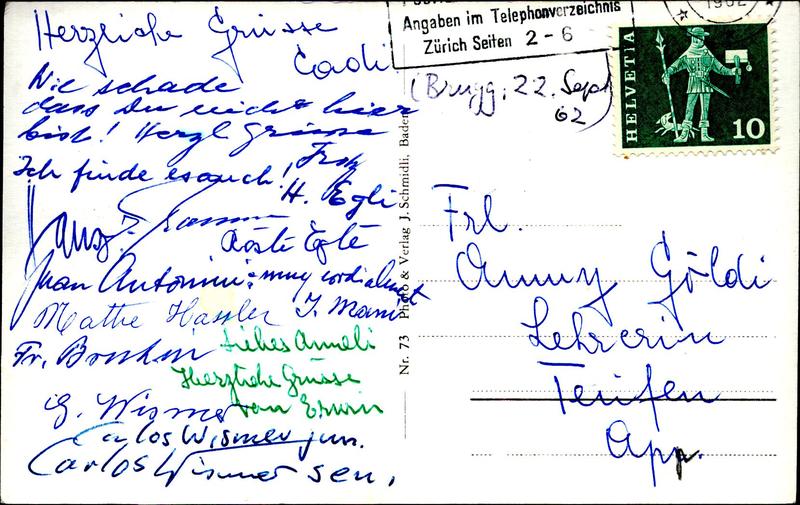 Herzliche Grüsse
Cadi
Wie schade
dass Du nicht hier
bist! Herzl Grüsse
Ich finde es auch!
H. Egli
Hans
Egli
Juan Antonini: muy cordialment
Mathe Hassler J. Mani
Fr.
Liebes Anneli
Herzliche Grüsse
von Erwin
G. Wismer
Carlos Wismer jun.
Carlos Wismer sen.
Nr. 73 Photo & Verlag J. Schmidli, Baden
Angaben im Telephonverzeichnis
Zürich Seiten 2-6
1962
(Brugg, 22. Sept
62
HELVETIA
10
Frl.
Anny Göldi
Lehrerin
Teufen
App.